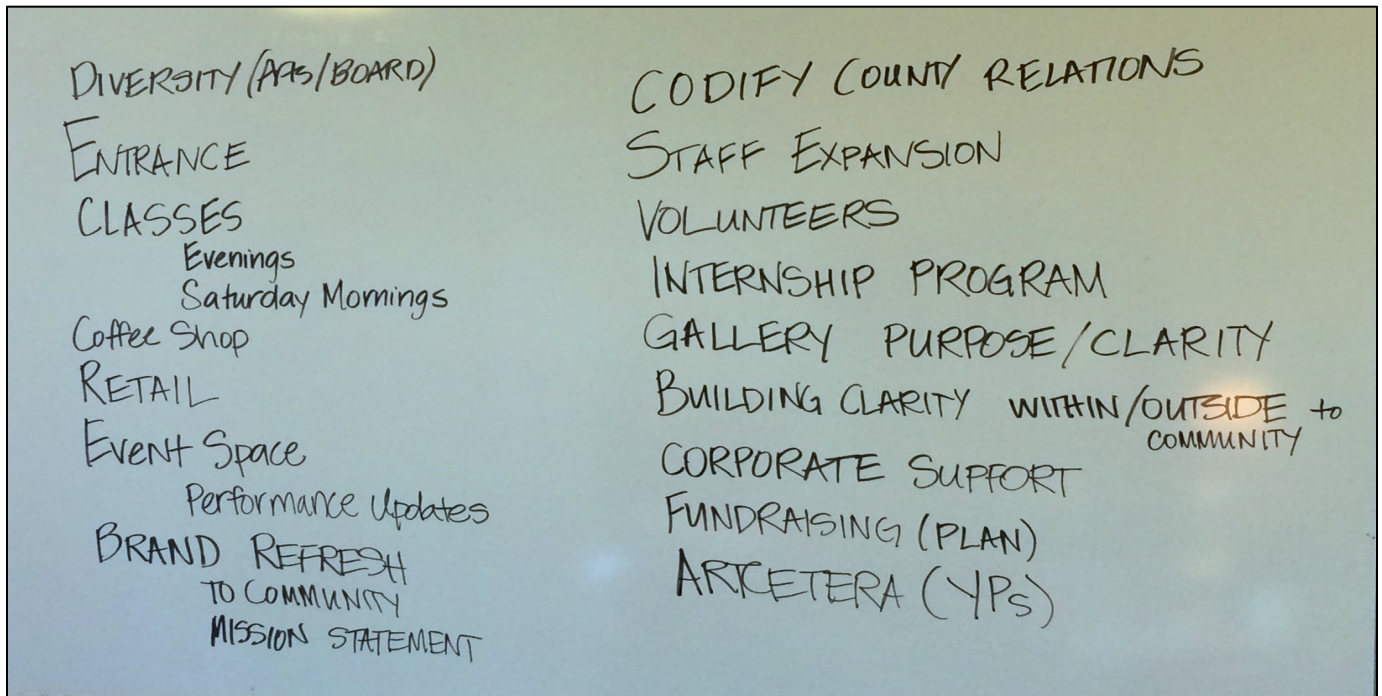 DIVERSITY (APS/BOARD)
ENTRANCE
CLASSES
Evenings
Saturday Mornings
Coffee Shop
RETAIL
Event Space
Performance Updates
BRAND REFRESH
TO COMMUNITY
MISSION STATEMENT
CODIFY COUNTY RELATIONS
STAFF EXPANSION
VOLUNTEERS
INTERNSHIP PROGRAM
GALLERY PURPOSE/CLARITY
BUILDING CLARITY WITHIN/OUTSIDE to
COMMUNITY
CORPORATE SUPPORT
FUNDRAISING (PLAN)
ARTCETERA (YPs)